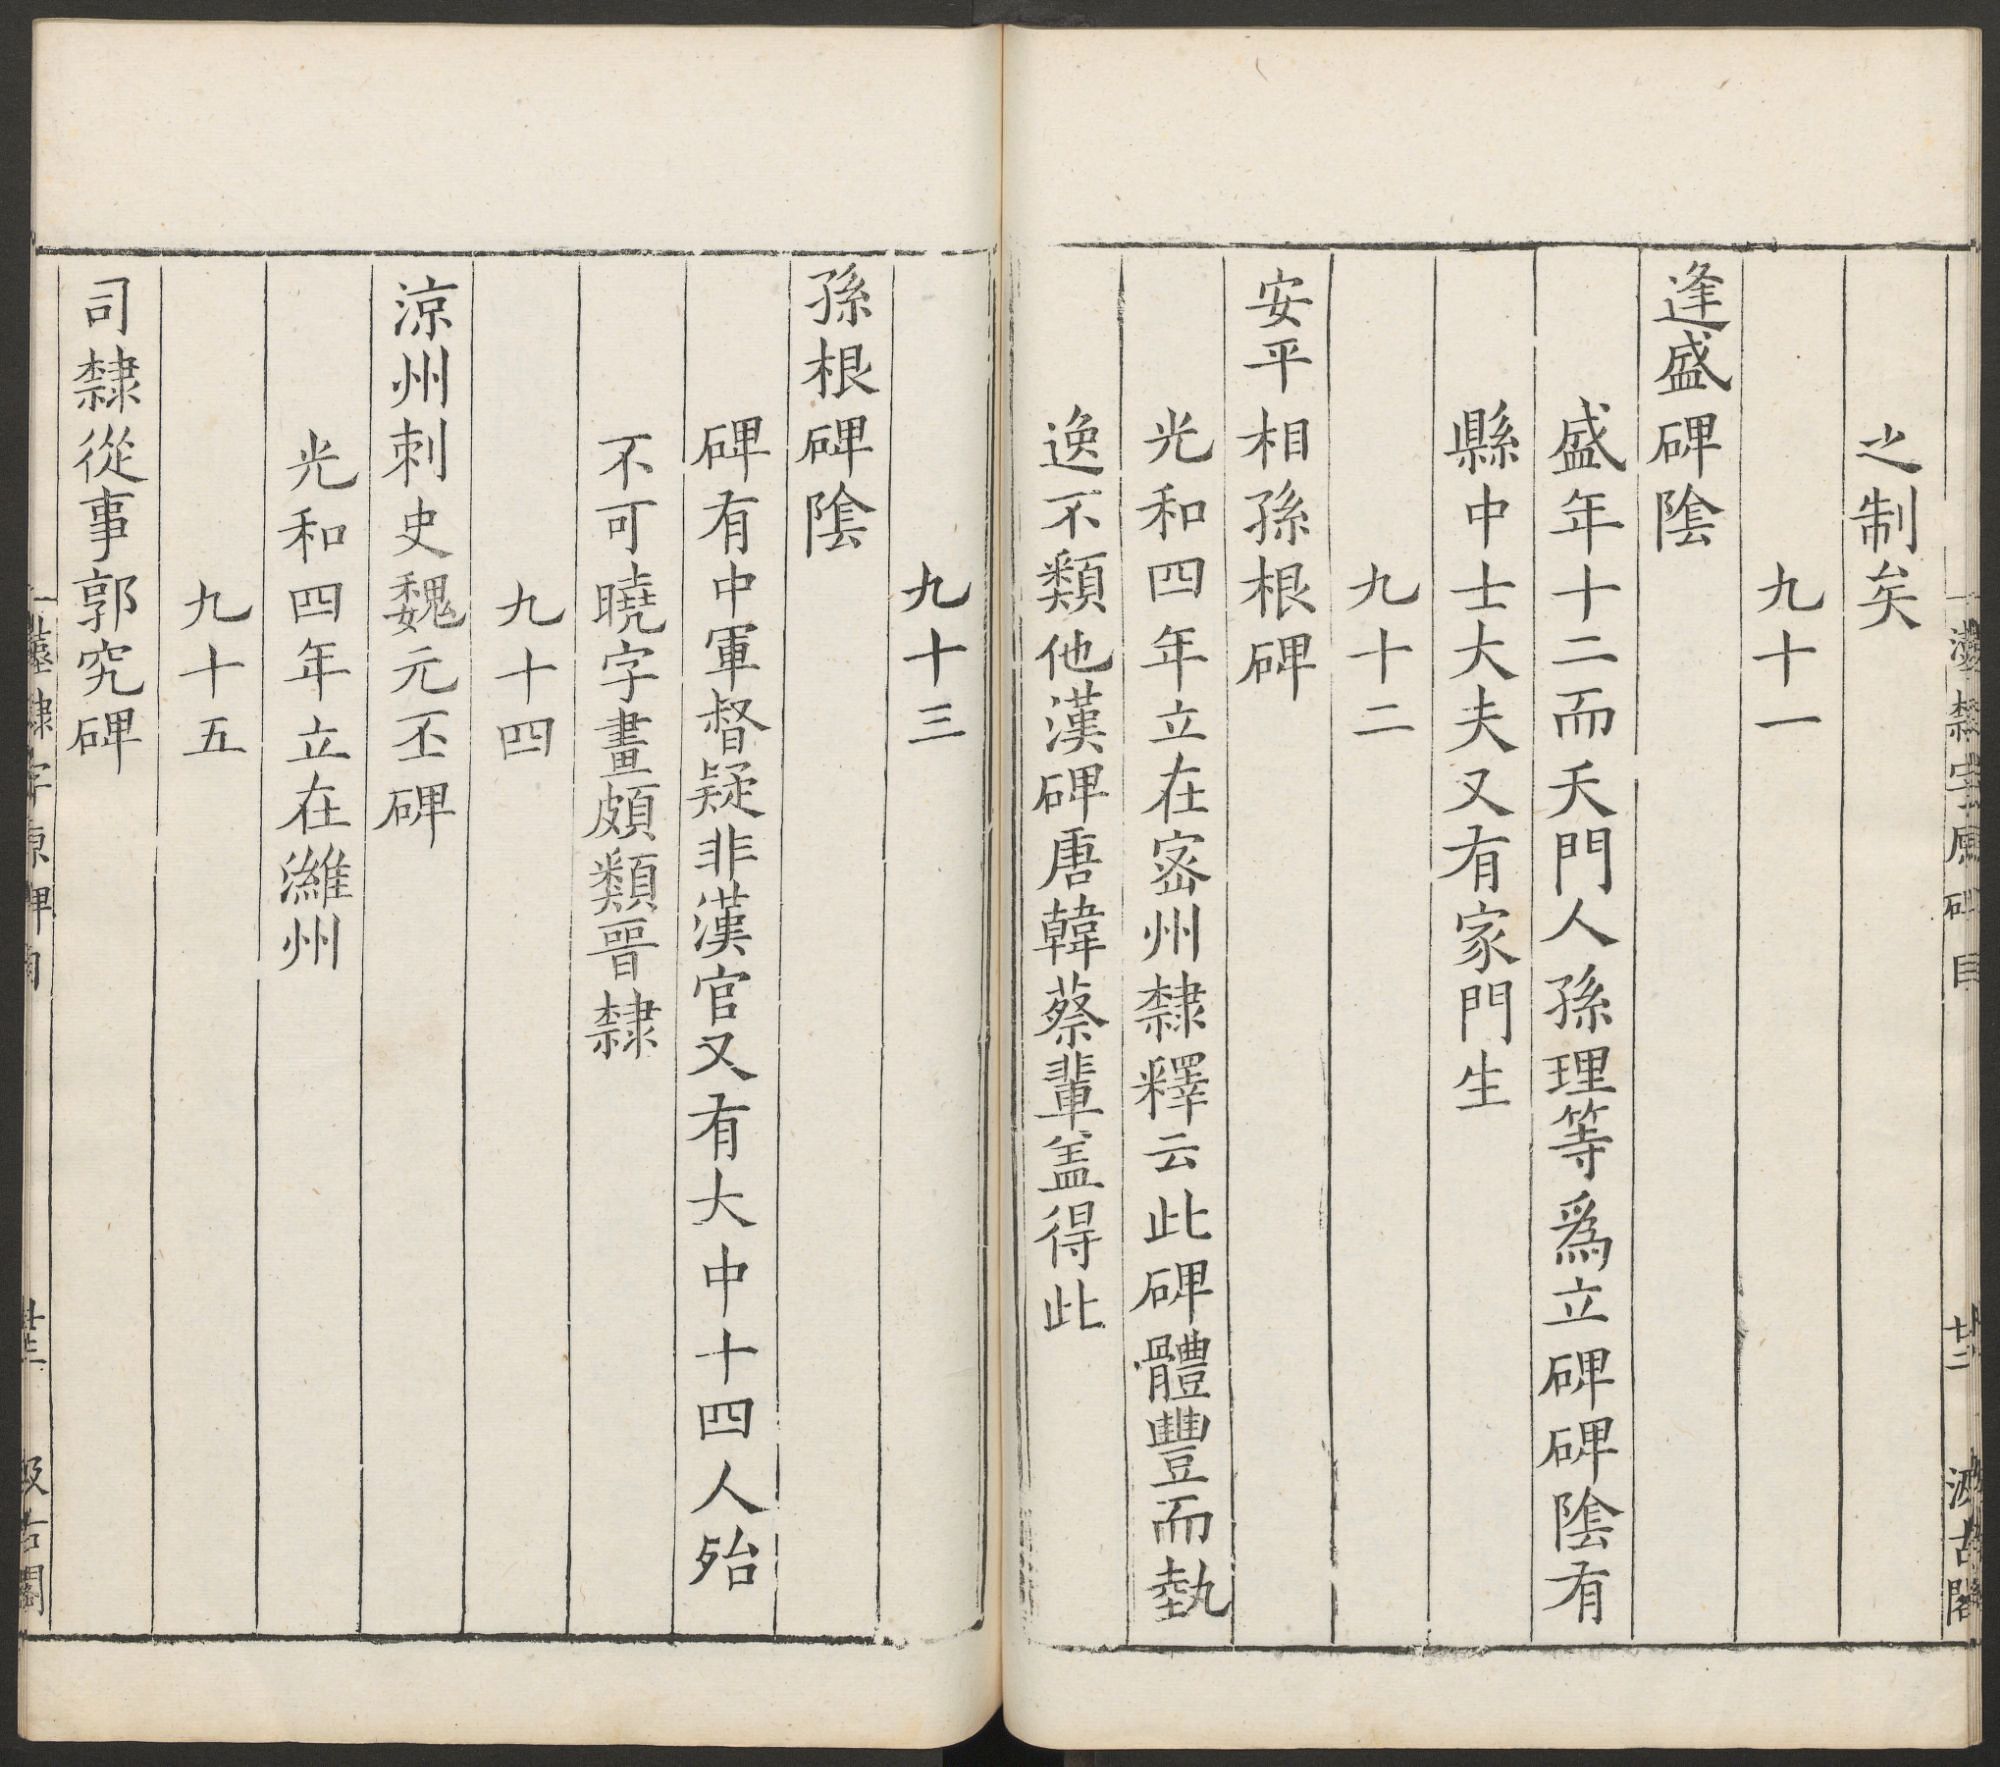 之制矣
九十一
逢盛碑陰
盛年十二而夭門人孫理等爲立碑碑陰有
縣中士大夫又有家門生
九十二
安平相孫根碑
光和四年立在密州隸釋云此碑體豐而埶
逸不類他漢碑唐韓蔡輩盖得此
九十三
孫根碑陰
碑有中軍督疑非漢官又有大中十四人殆
不可曉字畫頗類晉隸
九十四
涼州刺史魏元丕碑
光和四年立在濰州
九十五
司隸從事郭究碑